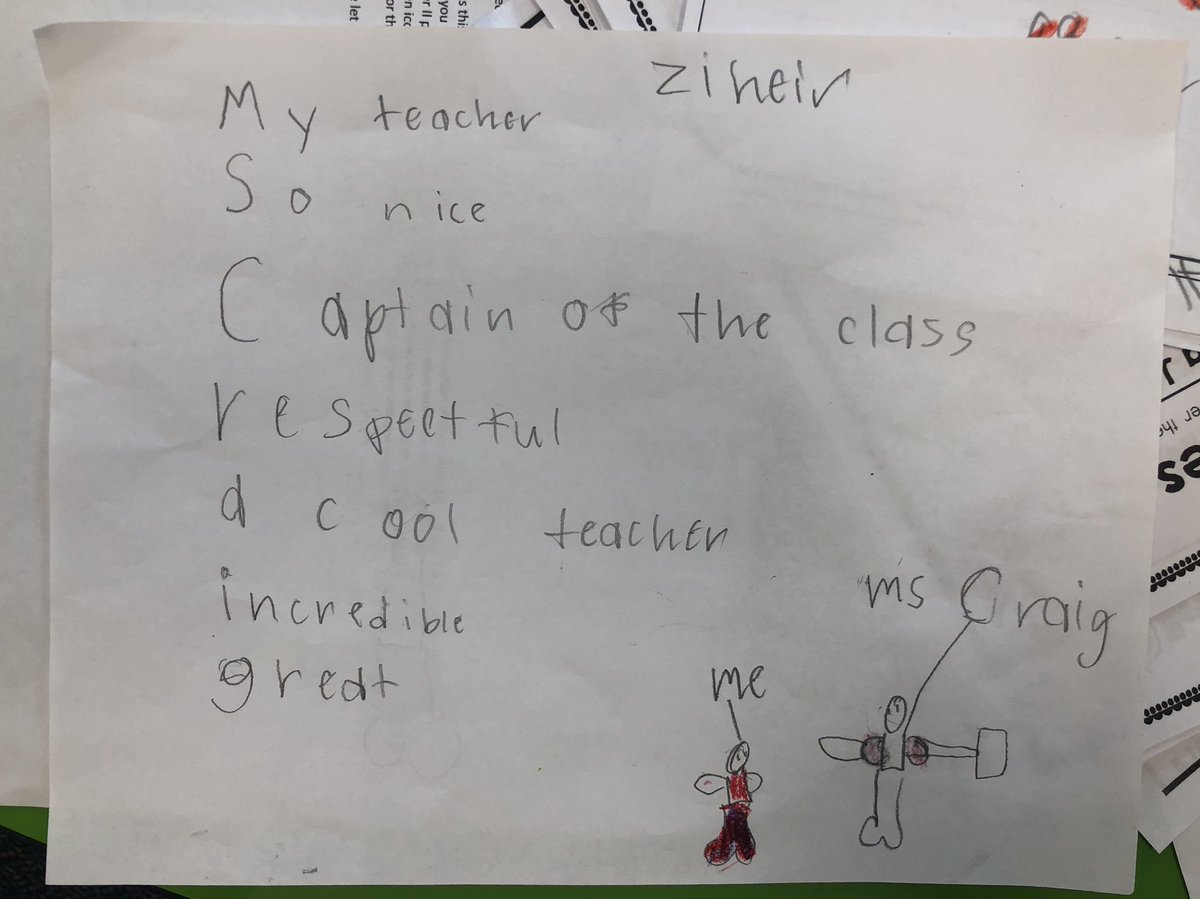 ziheir
My teacher
So nice
Captain of the class
respectful
a cool teacher
incredible
great
ms Craig
me